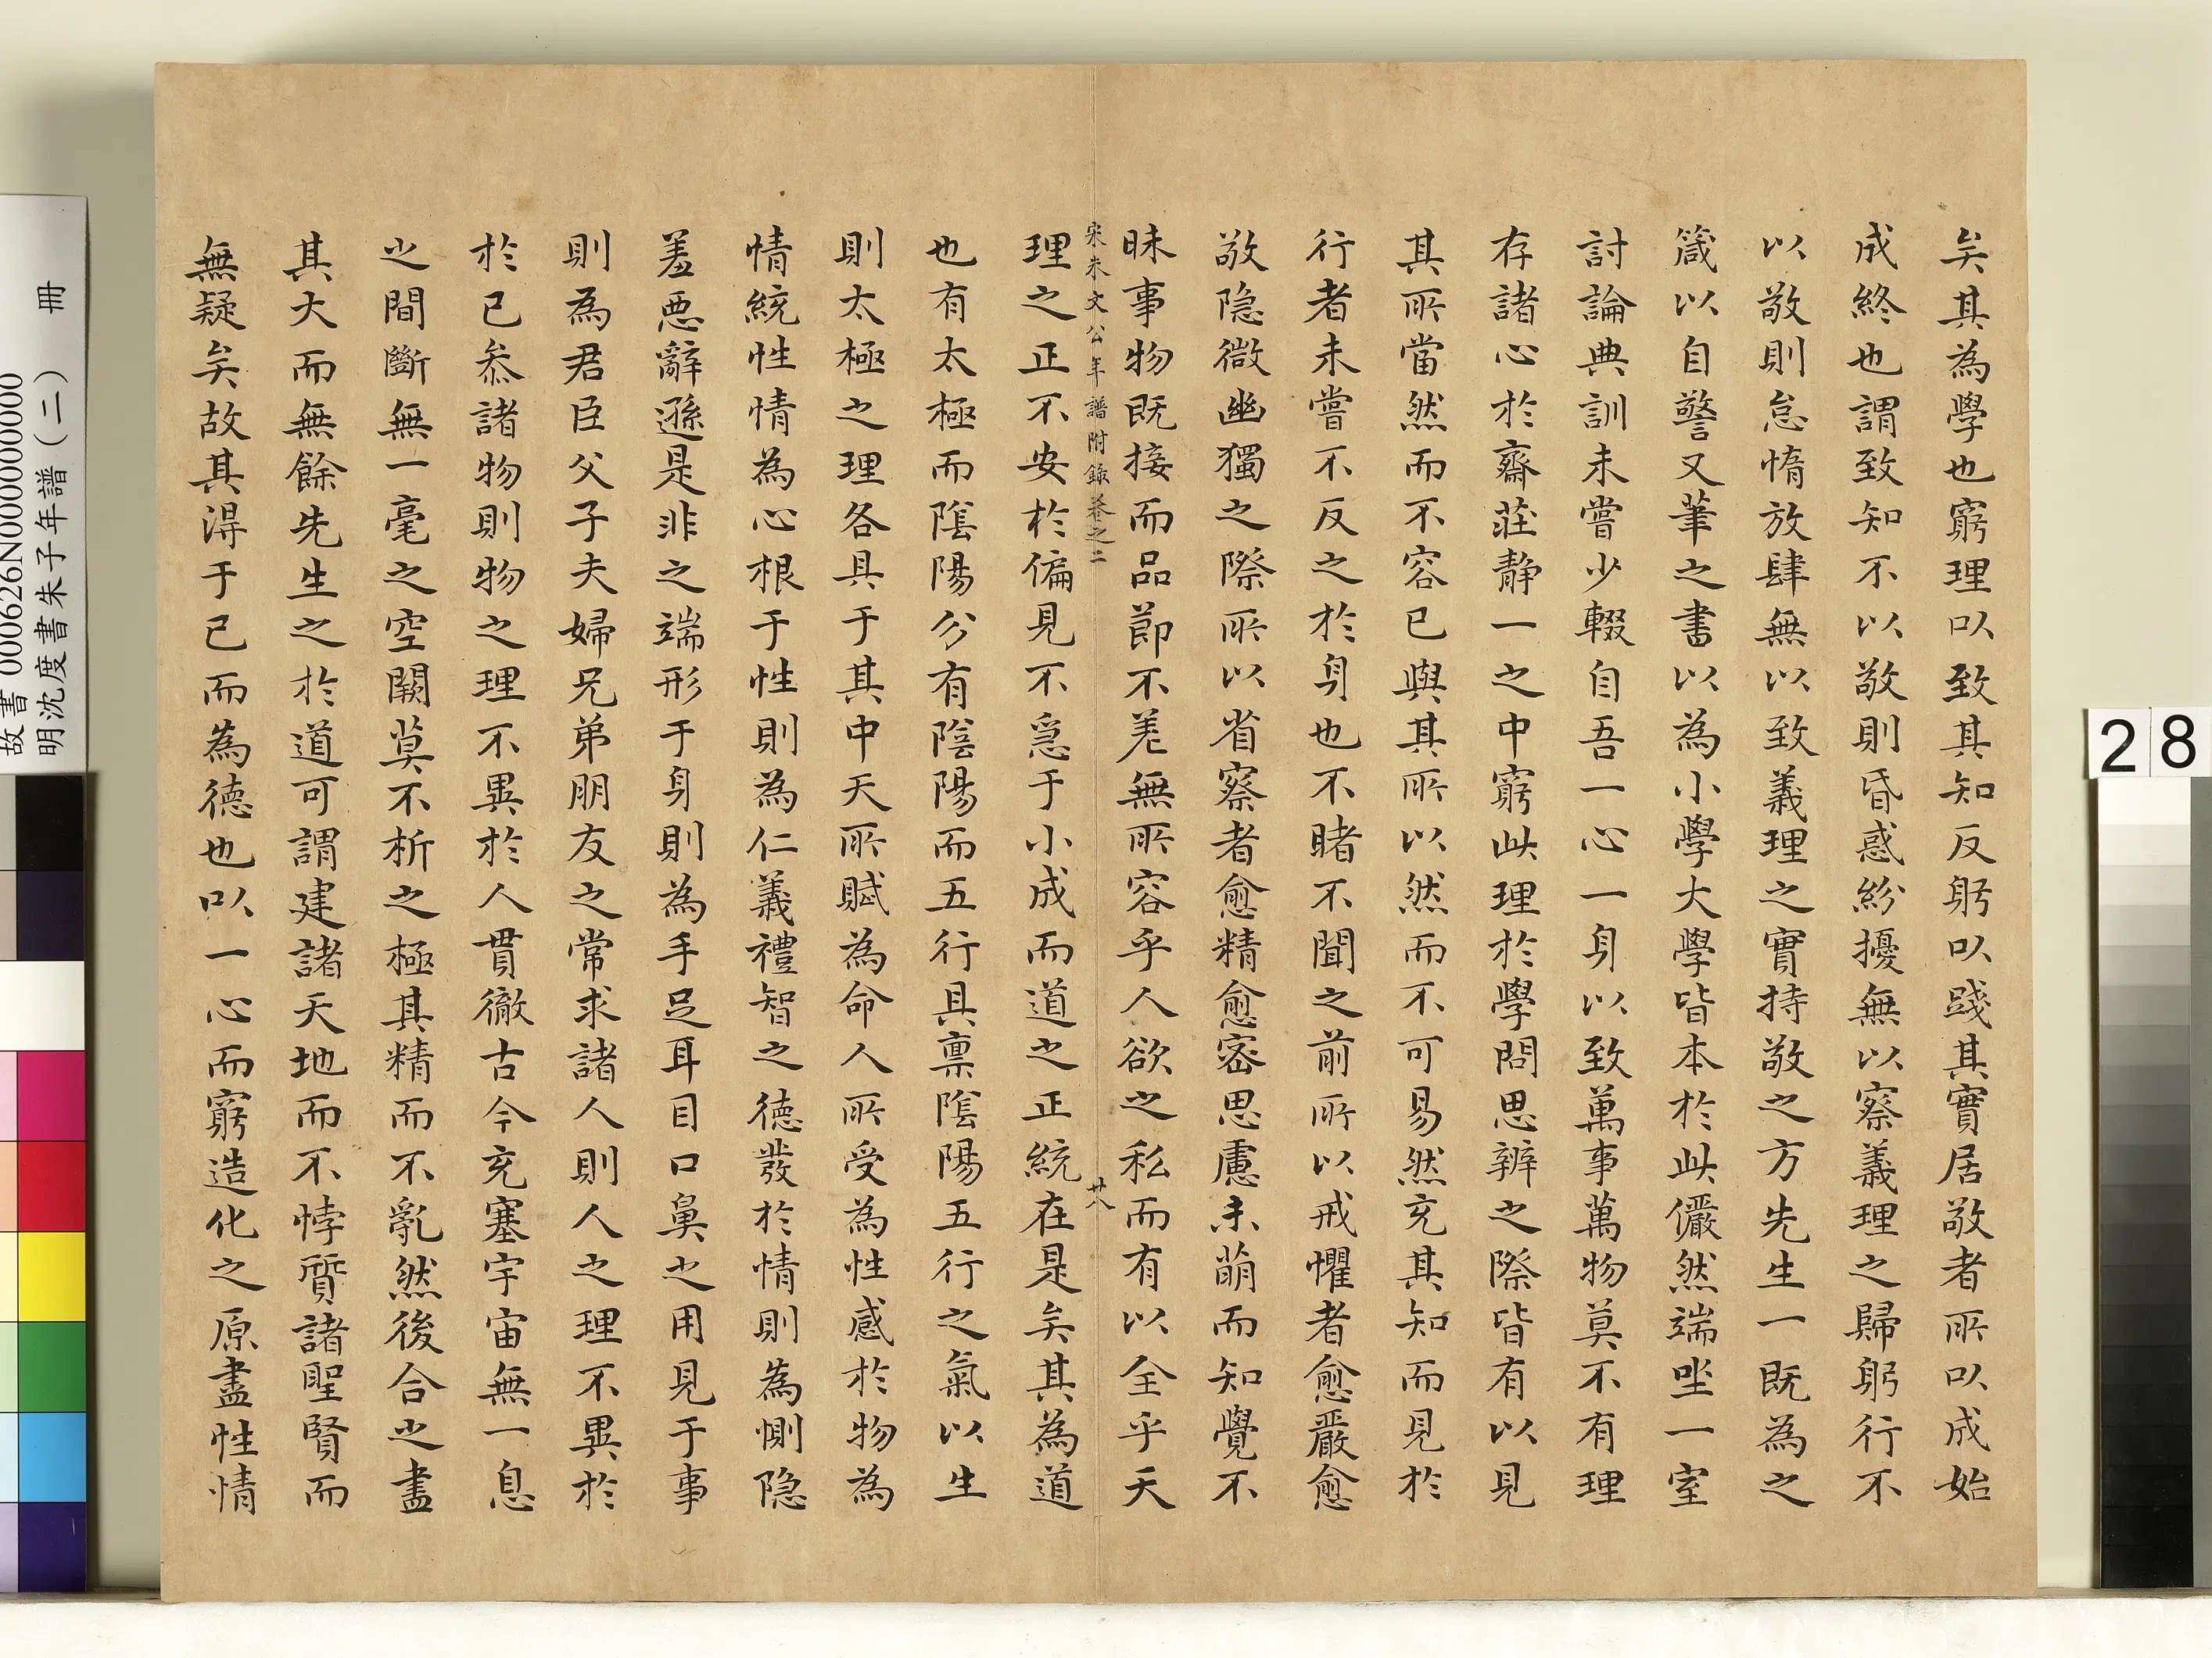 矣其為學也窮理以致其知反躬以踐其實居敬者所以成始
成終也謂致知不以敬則昏惑紛擾無以察義理之歸躬行不
以敬則怠惰放肆無以致義理之實持敬之方先生一既為之
箴以自警又筆之書以為小學大學皆本於此儼然端坐一室
討論典訓未嘗少輟自吾一心一身以致萬事萬物莫不有理
存諸心於齋莊靜一之中窮此理於學問思辨之際皆有以見
其所當然而不容已與其所以然而不可易然充其知而見於
行者未嘗不反之於身也不睹不聞之前所以戒懼者愈嚴愈
敬隐微幽獨之際所以省察者愈精愈密思慮未萌而知覺不
昧事物既接而品節不差無所容乎人欲之私而有以全乎天
宋朱文公年譜附錄卷之二
廿八
理之正不安於偏見不急于小成而道之正統在是矣其為道
也有太極而陰陽分有陰陽而五行具禀陰陽五行之氣以生
則太極之理各具于其中天所賦為命人所受為性感於物為
情統性情為心根于性則為仁義禮智之德發於情則為惻隐
羞惡辭遜是非之端形于身則為手足耳目口鼻之用見于事
則為君臣父子夫婦兄弟朋友之常求諸人則人之理不異於
於已叅諸物則物之理不異於人貫徹古今充塞宇宙無一息
之間斷無一毫之空闕莫不析之極其精而不亂然後合之盡
其大而無餘先生之於道可謂建諸天地而不悖質諸聖賢而
無疑矣故其得于已而為德也以一心而窮造化之原盡性情
故書 000626N000000000
明沈度書朱子年譜(二) 冊
28